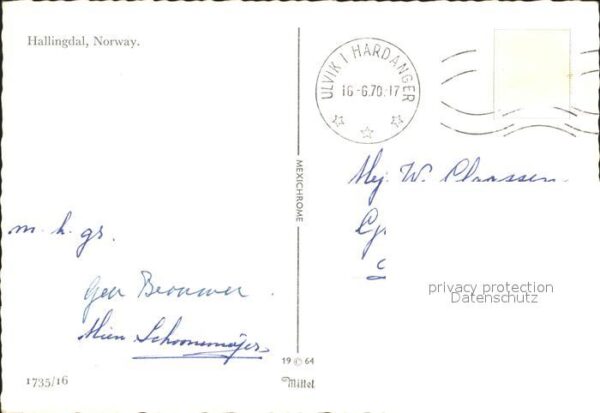 Hallingdal, Norway.
ULVIK I HARDANGER
16-6.70.-17
MEXICHROME
Mej. W. Plaassen.
m. h. gr.
Ger Brouwer.
Mien Schoonemeijer
privacy protection
Datenschutz
19 © 64
Mittet
1735/16